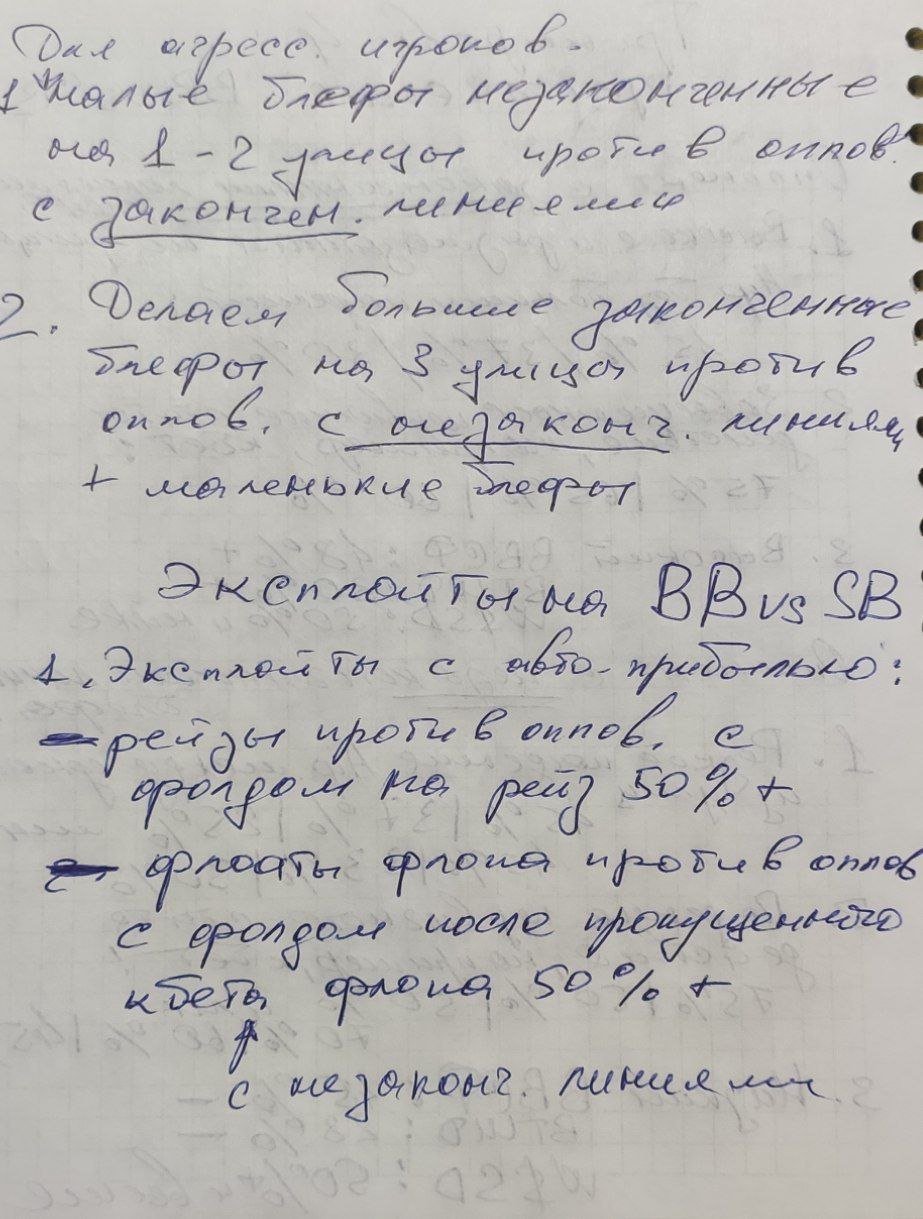 Для агресс. игроков.
1 малые блефы незаконченные
на 1-2 улицы против оппов.
с закончен. линиями
2. Делаем большие законченные
блефы на 3 улица против
оппов. с незаконч. линиями
+ маленькие блефы
Эксплойты на BB vs SB
1. Эксплойты с авто-прибылью:
рейзы против оппов. с
фолдом на рейз 50% +
флоаты флопа против оппов
с фолдом после пропущенного
кбета флопа 50% +
с незаконч. линиями